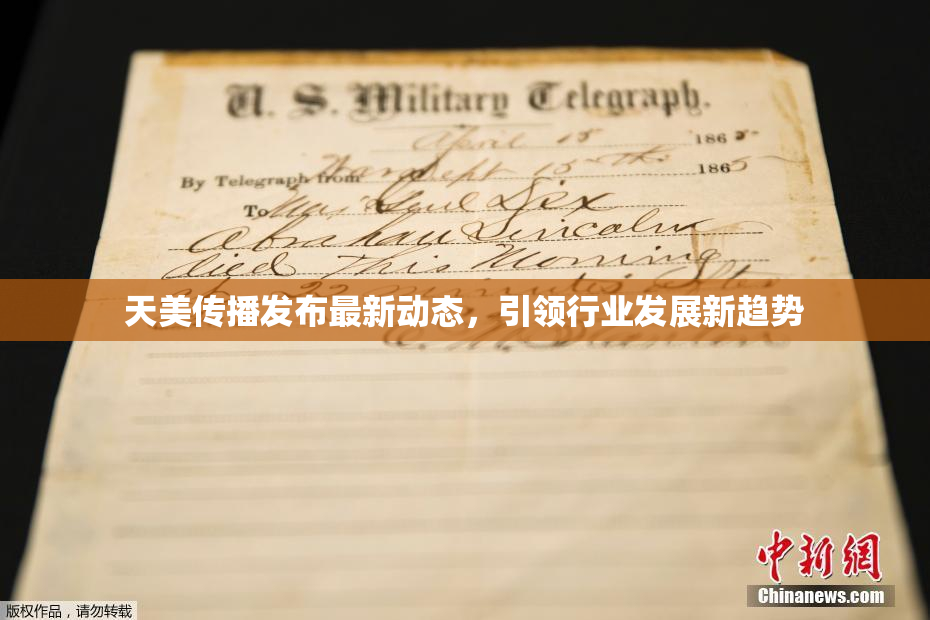 U. S. Military Telegraph.
April 15 1865
By Telegraph from War Dept 15th 1865
To Maj Genl Dix
Abraham Lincoln
died This Morning
at 22 minutes after
天美传播发布最新动态，引领行业发展新趋势
E. M. Stanton
中新網
Chinanews.com
版权作品，请勿转载